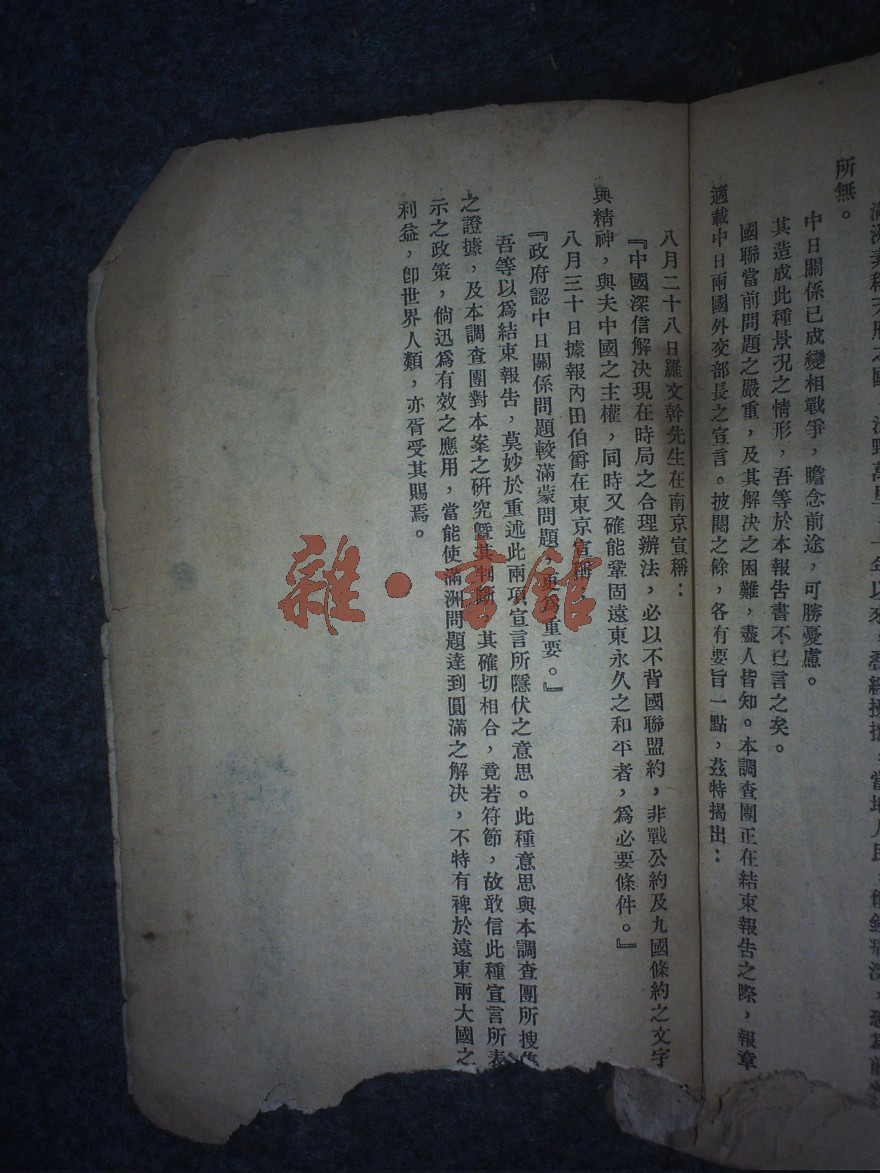 所無。
中日關係已成變相戰爭，瞻念前途，可勝憂慮。
其造成此種景况之情形，吾等於本報告書不已言之矣。
國聯當前問題之嚴重，及其解決之困難，盡人皆知。本調查團正在結束報告之際，報章
適載中日兩國外交部長之宣言。披閱之餘，各有要旨一點，茲特揭出：
八月二十八日羅文幹先生在南京宣稱：
『中國深信解决現在時局之合理辦法，必以不背國聯盟約，非戰公約及九國條約之文字
與精神，與夫中國之主權，同時又確能鞏固遠東永久之和平者，爲必要條件。』
八月三十日據報內田伯爵在東京宣稱，
『政府認中日關係問題較滿蒙問題，更爲重要。』
吾等以爲結束報告，莫妙於重述此兩項宣言所隱伏之意思。此種意思與本調查團所搜
之證據，及本調查團對本案之研究暨其判斷，其確切相合，竟若符節，故敢信此種宣言所表
示之政策，倘迅爲有效之應用，當能使滿洲問題達到圓滿之解决，不特有裨於遠東兩大國之
利益，卽世界人類，亦胥受其賜焉。
雜·書館